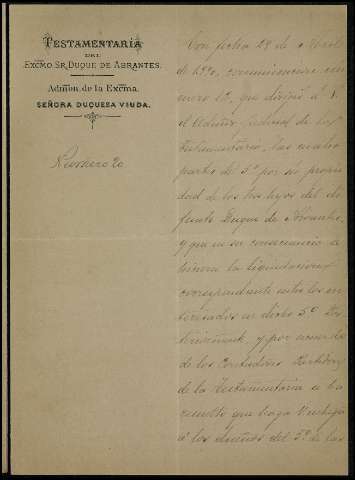 TESTAMENTARIA
DEL
EXCMO. SR. DUQUE DE ABRANTES.
Admón de la Excma.
SEÑORA DUQUESA VIUDA.
Numero 20
Con fecha 29 de Abril
de
que dirijió á V.
el Admor Judicial de la
Testamentaria, las cuatro
partes de 5º por su propie
dad de los tres hijos del di
funto Duque de Abrantes,
y que en su consecuencia se
hiciera la liquidacion
correspondiente entre los in
teresados en dicho 5º
y por acuerdo
de los Contadores Partidores
de la Testamentaria se ha
resuelto que haga
á los dueños del 5º de las